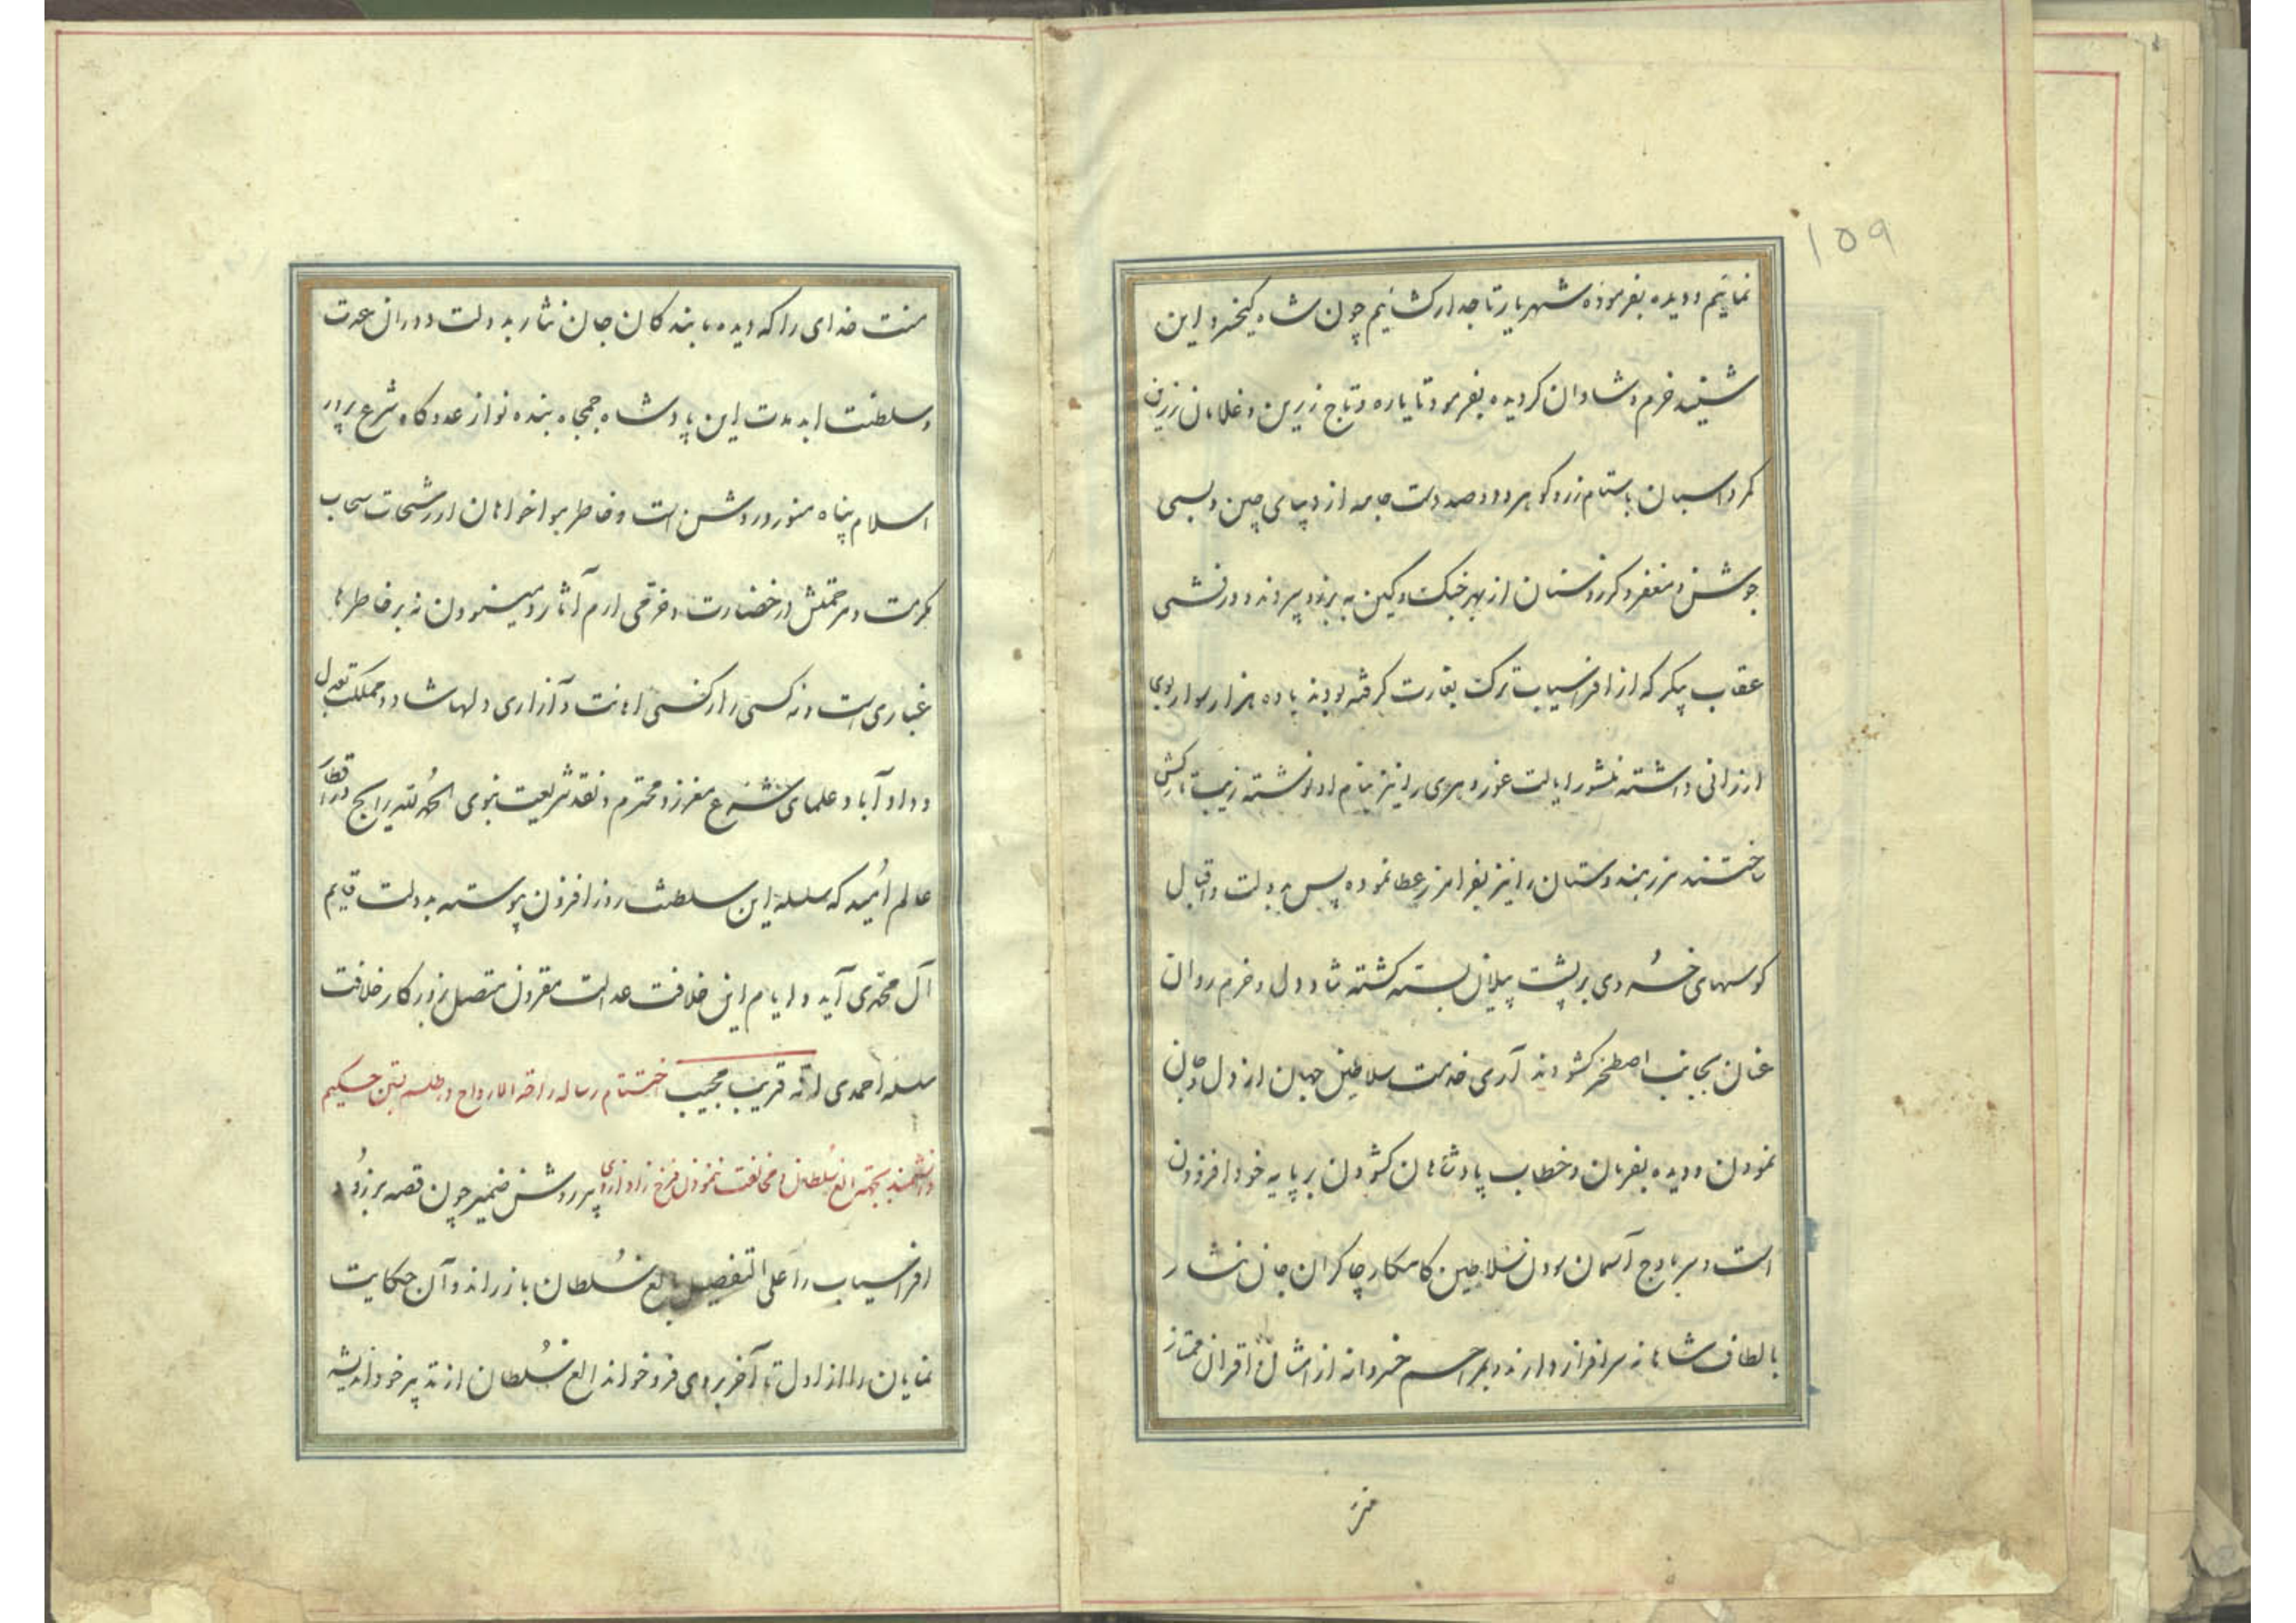 ۱۵۹
نمائیم و دیده بفرموده شهریار تاجدار کشائیم چون شاه کیخسرو این
شنید خرم و شادان کردیده بفرمود تا یاره و تاج زرین و غلامان زرین
کمر و اسبان باستام زر و کوهر و دو صد دست جامه از دیبای چین و بسی
جوشن و مغفر و کرز و سنان از بهر جنک و کین به برزو سپردند و درفشی
عقاب پیکر که از افراسیاب ترک بغارت کرفته بودند با ده هزار سوار بوی
ارزانی داشته منشور ایالت غور و هری را نیز بنام او نوشته زیب نکارش
ساختند مرز هندوستان را نیز بفرامرز عطا نموده پس بدولت و اقبال
کوسهای خسروی بر پشت پیلان بسته کشته شاد دل و خرم روان
عنان بجانب اصطخر کشودند آری خدمت سلاطین جهان از دل و جان
نمودن و دیده بفرمان و خطاب پادشاهان کشودن بر پایه خود افزودن
است و سر باوج آسمان سودن سلاطین کامکار چاکران جان نثار
بالطاف شاهانه سرافراز دارند و بمراحم خسروانه از امثال و اقران ممتاز
منت خدای را که دیده ما بندکان جان نثار بدولت دوران عدت
و سلطنت ابد مدت این پادشاه جمجاه بنده نواز عدوکاه شرع پرور
اسلام پناه منور و روشن است و خاطر هواخواهان از رشحات سحاب
مکرمت و مرحمتش در خضارت و خرمی ارم آثار و مینو نمودن نه بر خاطرها
غباری است و نه کسی را از کسی اهانت و آزاری دلها شاد و مملکت بعدل
و داد آباد علمای شرع معزز و محترم و نقد شریعت نبوی الحمد لله رایج در اقطار
عالم امید که سلسله این سلطنت روز افزون پیوسته بدولت قایم
آل محمدی آید و ایام این خلافت عدالت مقرون متصل بروزکار خلافت
سلسله احمدی انه قریب مجیب اختتام رساله راحة الارواح در طلسم بستن حکیم
دانشمند بجهت الغ سلطان و مخالفت نمودن فرخ زاد از رای پیر روشن ضمیر چون قصه برزو و
افراسیاب را علی التفصیل بالغ سلطان باز راند و آن حکایت
نمایان را از اول تا آخر بر وی فرو خواند الغ سلطان از تدبیر خود اندیشه